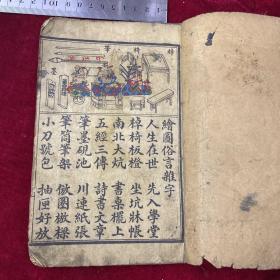 繪圖俗言雜字
人生在世 先入學堂
棹椅板櫈 坐坑牀帳
南北大炕 書桌擺上
五經三傳 詩書文章
筆墨硯池 川連紙張
筆筒筆架 倣圈倣樣
小刀號包 抽匣好放
筆
墨
椅
棹